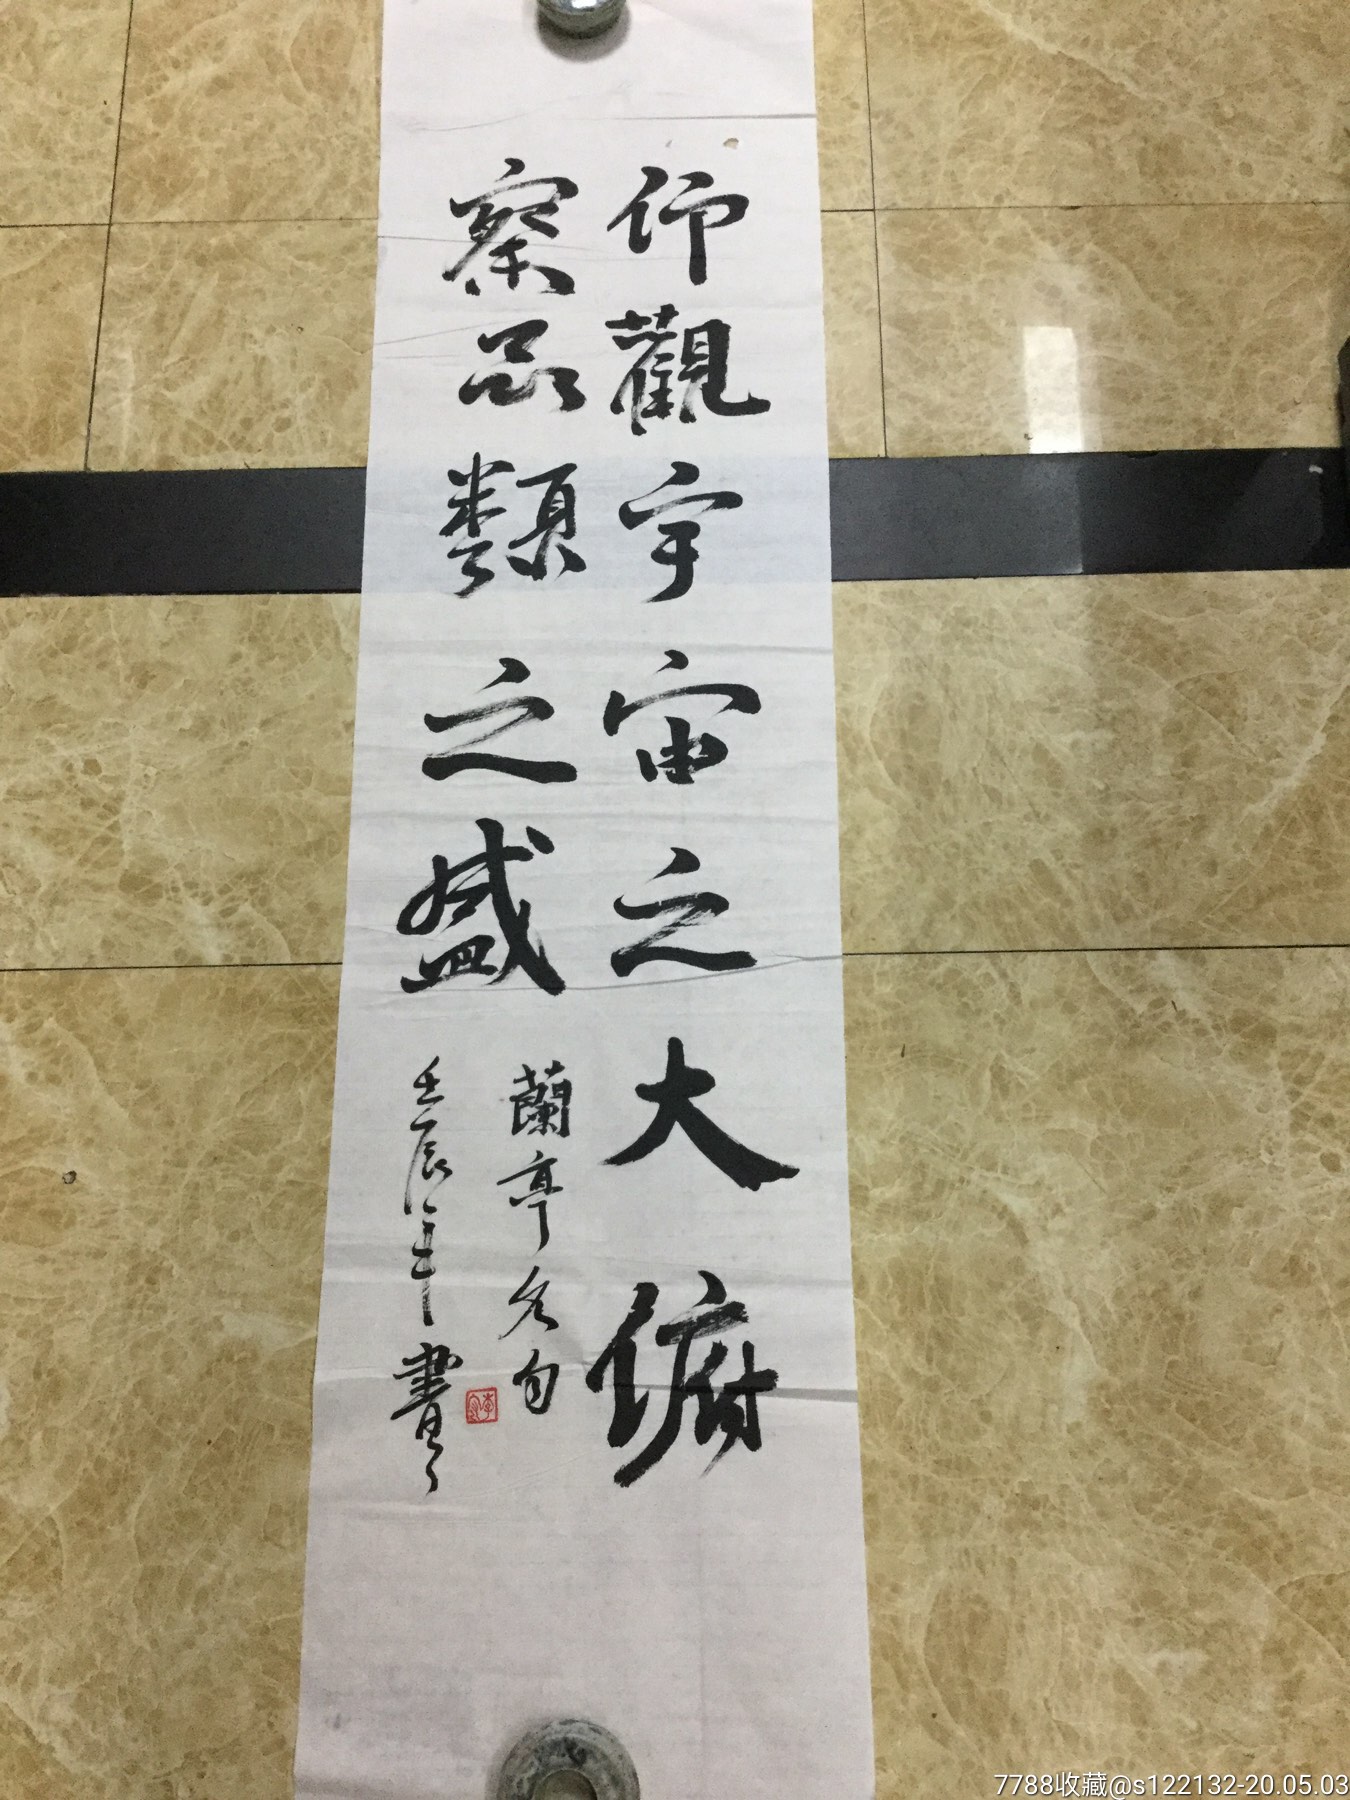 仰觀宇宙之大俯
察品類之盛
蘭亭名句
壬辰年書
7788收藏@s122132-20.05.03